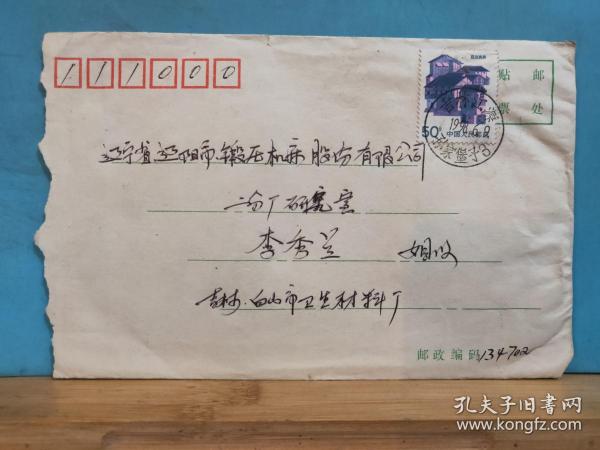 111000
贴邮
票处
50分 中国人民邮政
辽宁省辽阳市锻压机床股份有限公司
二分厂研究室
李秀兰 姐收
吉林.白山市卫生材料厂
邮政编码134702
孔夫子旧书网
www.kongfz.com